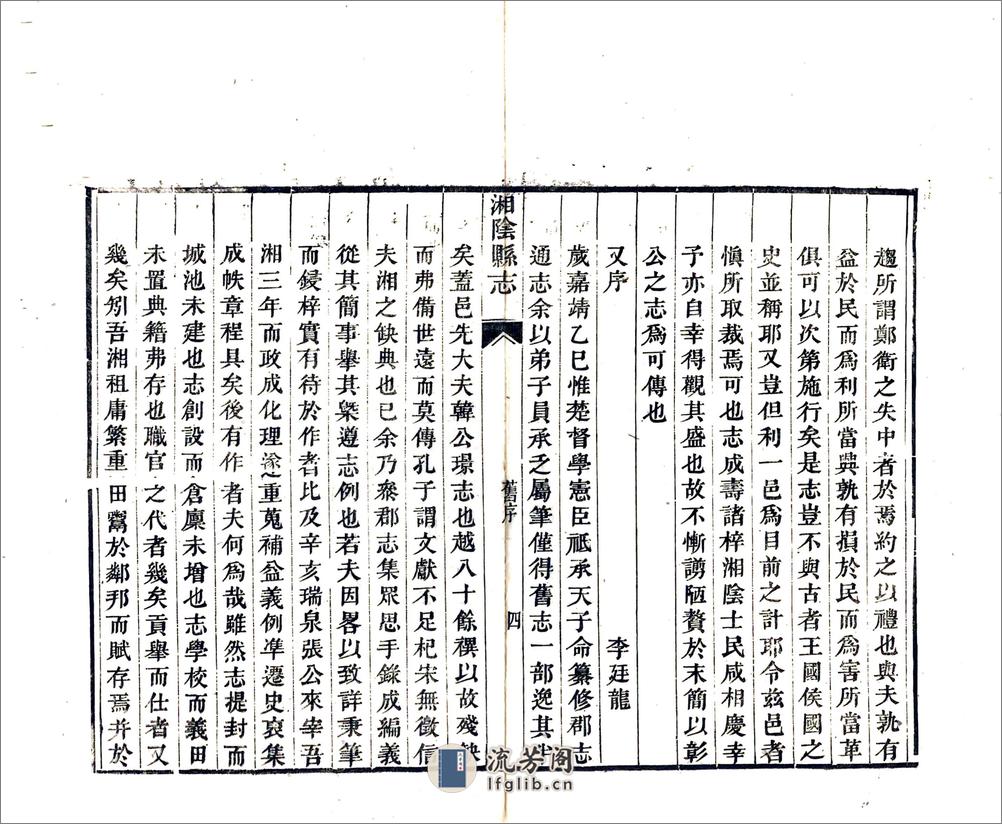 趨所謂鄭衛之失中者於焉約之以禮也與夫孰有
益於民而爲利所當興孰有損於民而爲害所當革
俱可以次第施行矣是志豈不與古者王國侯國之
史並稱耶又豈但利一邑爲目前之計耶令茲邑者
愼所取裁焉可也志成壽諸梓湘陰士民咸相慶幸
予亦自幸得觀其盛也故不慚謭陋贅於末簡以彰
公之志爲可傳也
又序
李廷龍
歲嘉靖乙巳惟楚督學憲臣祗承天子命纂修郡志
通志余以弟子員承乏屬筆僅得舊志一部逸其半
湘陰縣志
舊序
四
矣蓋邑先大夫韓公璟志也越八十餘禩以故殘缺
而弗備世遠而莫傳孔子謂文獻不足杞宋無徵信
夫湘之缺典也已余乃叅郡志集眾思手錄成編義
從其簡事舉其槩遵志例也若夫因畧以致詳秉筆
而鋟梓實有待於作者比及辛亥瑞泉張公來宰吾
湘三年而政成化理遂重蒐補益義例凖遷史裒集
成帙章程具矣後有作者夫何爲哉雖然志提封而
城池未建也志創設而倉廩未增也志學校而義田
未置典籍弗存也職官之代者幾矣貢舉而仕者又
幾矣矧吾湘祖庸繁重田鬻於鄰邦而賦存焉幷於
流芳阁
lfglib.cn